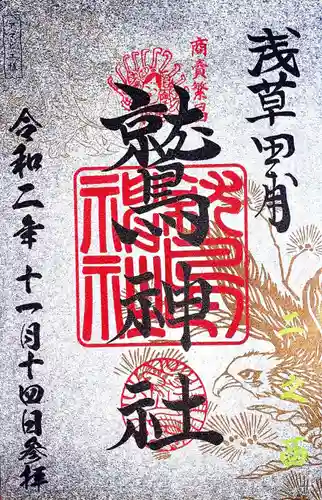 浅草田甫
商売繁昌
鷲神社
鷲神社
二之酉
令和二年十一月十四日参拝